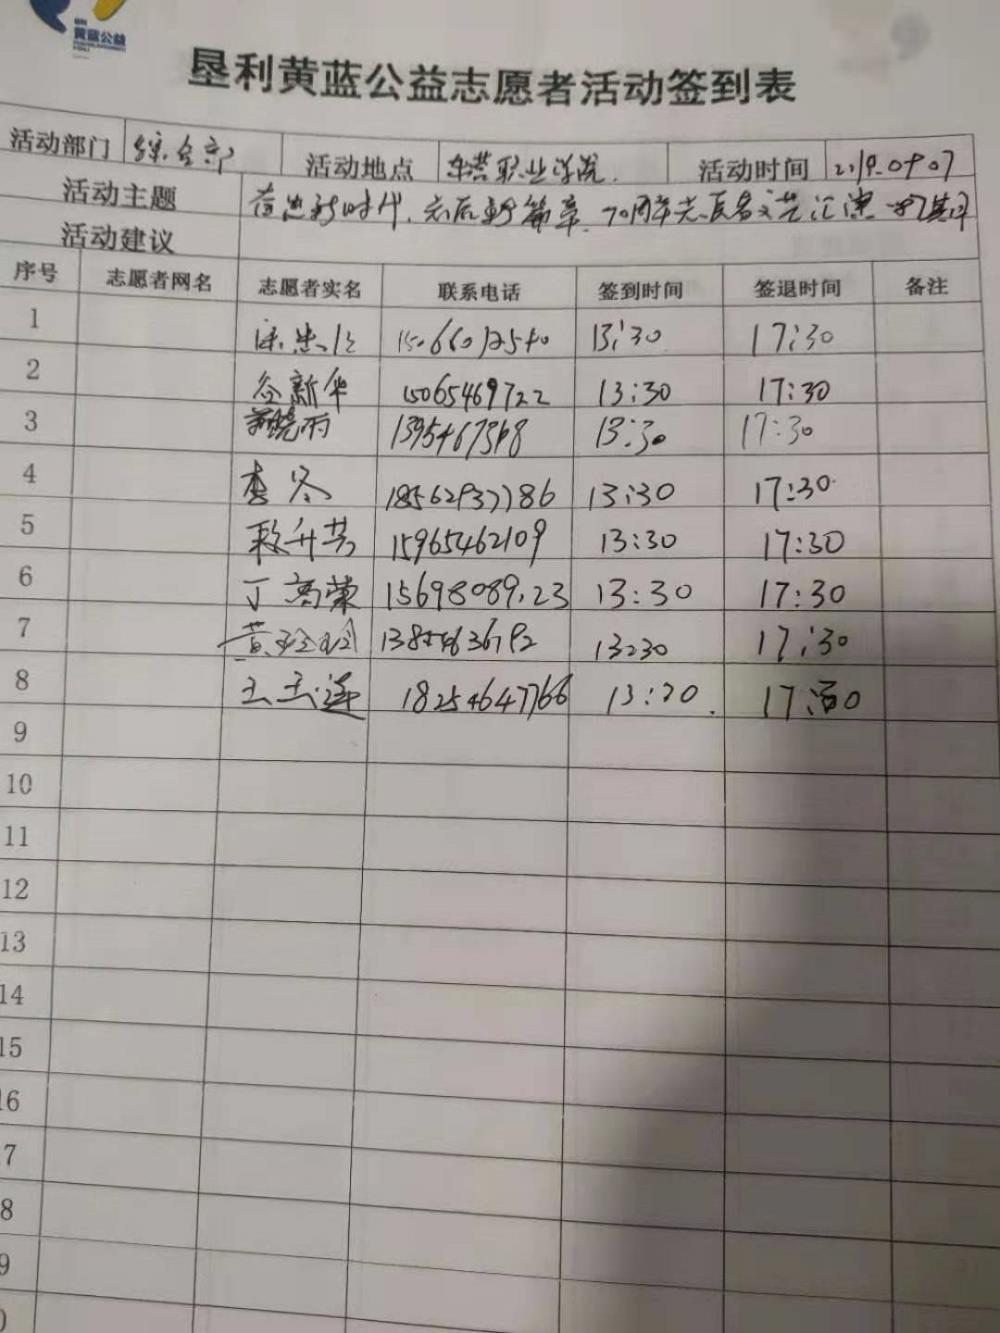 黄蓝公益
垦利黄蓝公益志愿者活动签到表
活动部门 综合部 活动地点 东营职业学院. 活动时间 2019.09.07
活动主题 奋进新时代, 新篇章, 70周年 文艺汇演
活动建议
序号 志愿者网名 志愿者实名 联系电话 签到时间 签退时间 备注
1 13:30 17:30
2 谷新华 15065469722 13:30 17:30
3 晓雨 13:30 17:30
4 李冬 18562937786 13:30 17:30
5 升芳 15965462109 13:30 17:30
6 丁高荣 13:30 17:30
7 黄 1330 17:30
8 王玉莲 18254647766 17:30
9
10
11
12
13
14
15
16
7
8
9